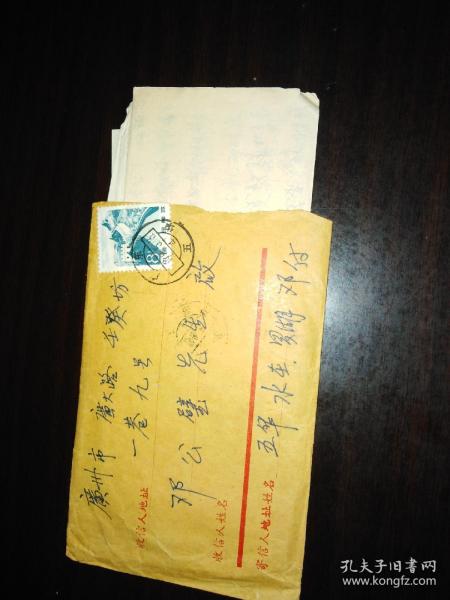 廣州市 廣大路 壬癸坊
一巷九号
收信人地址
邓公璧先生 啟
收信人姓名
五华 水寨 邓付
寄信人地址姓名
8
五
孔夫子旧书网
www.kongfz.com